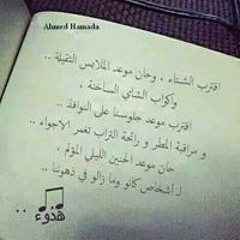 Ahmed Hamada
اقترب الشتاء ، وحان موعد الملابس الثقيلة ..
وأكواب الشاي الساخنة ،
اقترب موعد جلوسنا على النوافذ ..
و مراقبة المطر و رائحة التراب تغمر الاجواء ..
حان موعد الحنين الليلي المؤلم ،
لـ أشخاص كانو وما زالو في ذهوننا ..
هدُوء ..